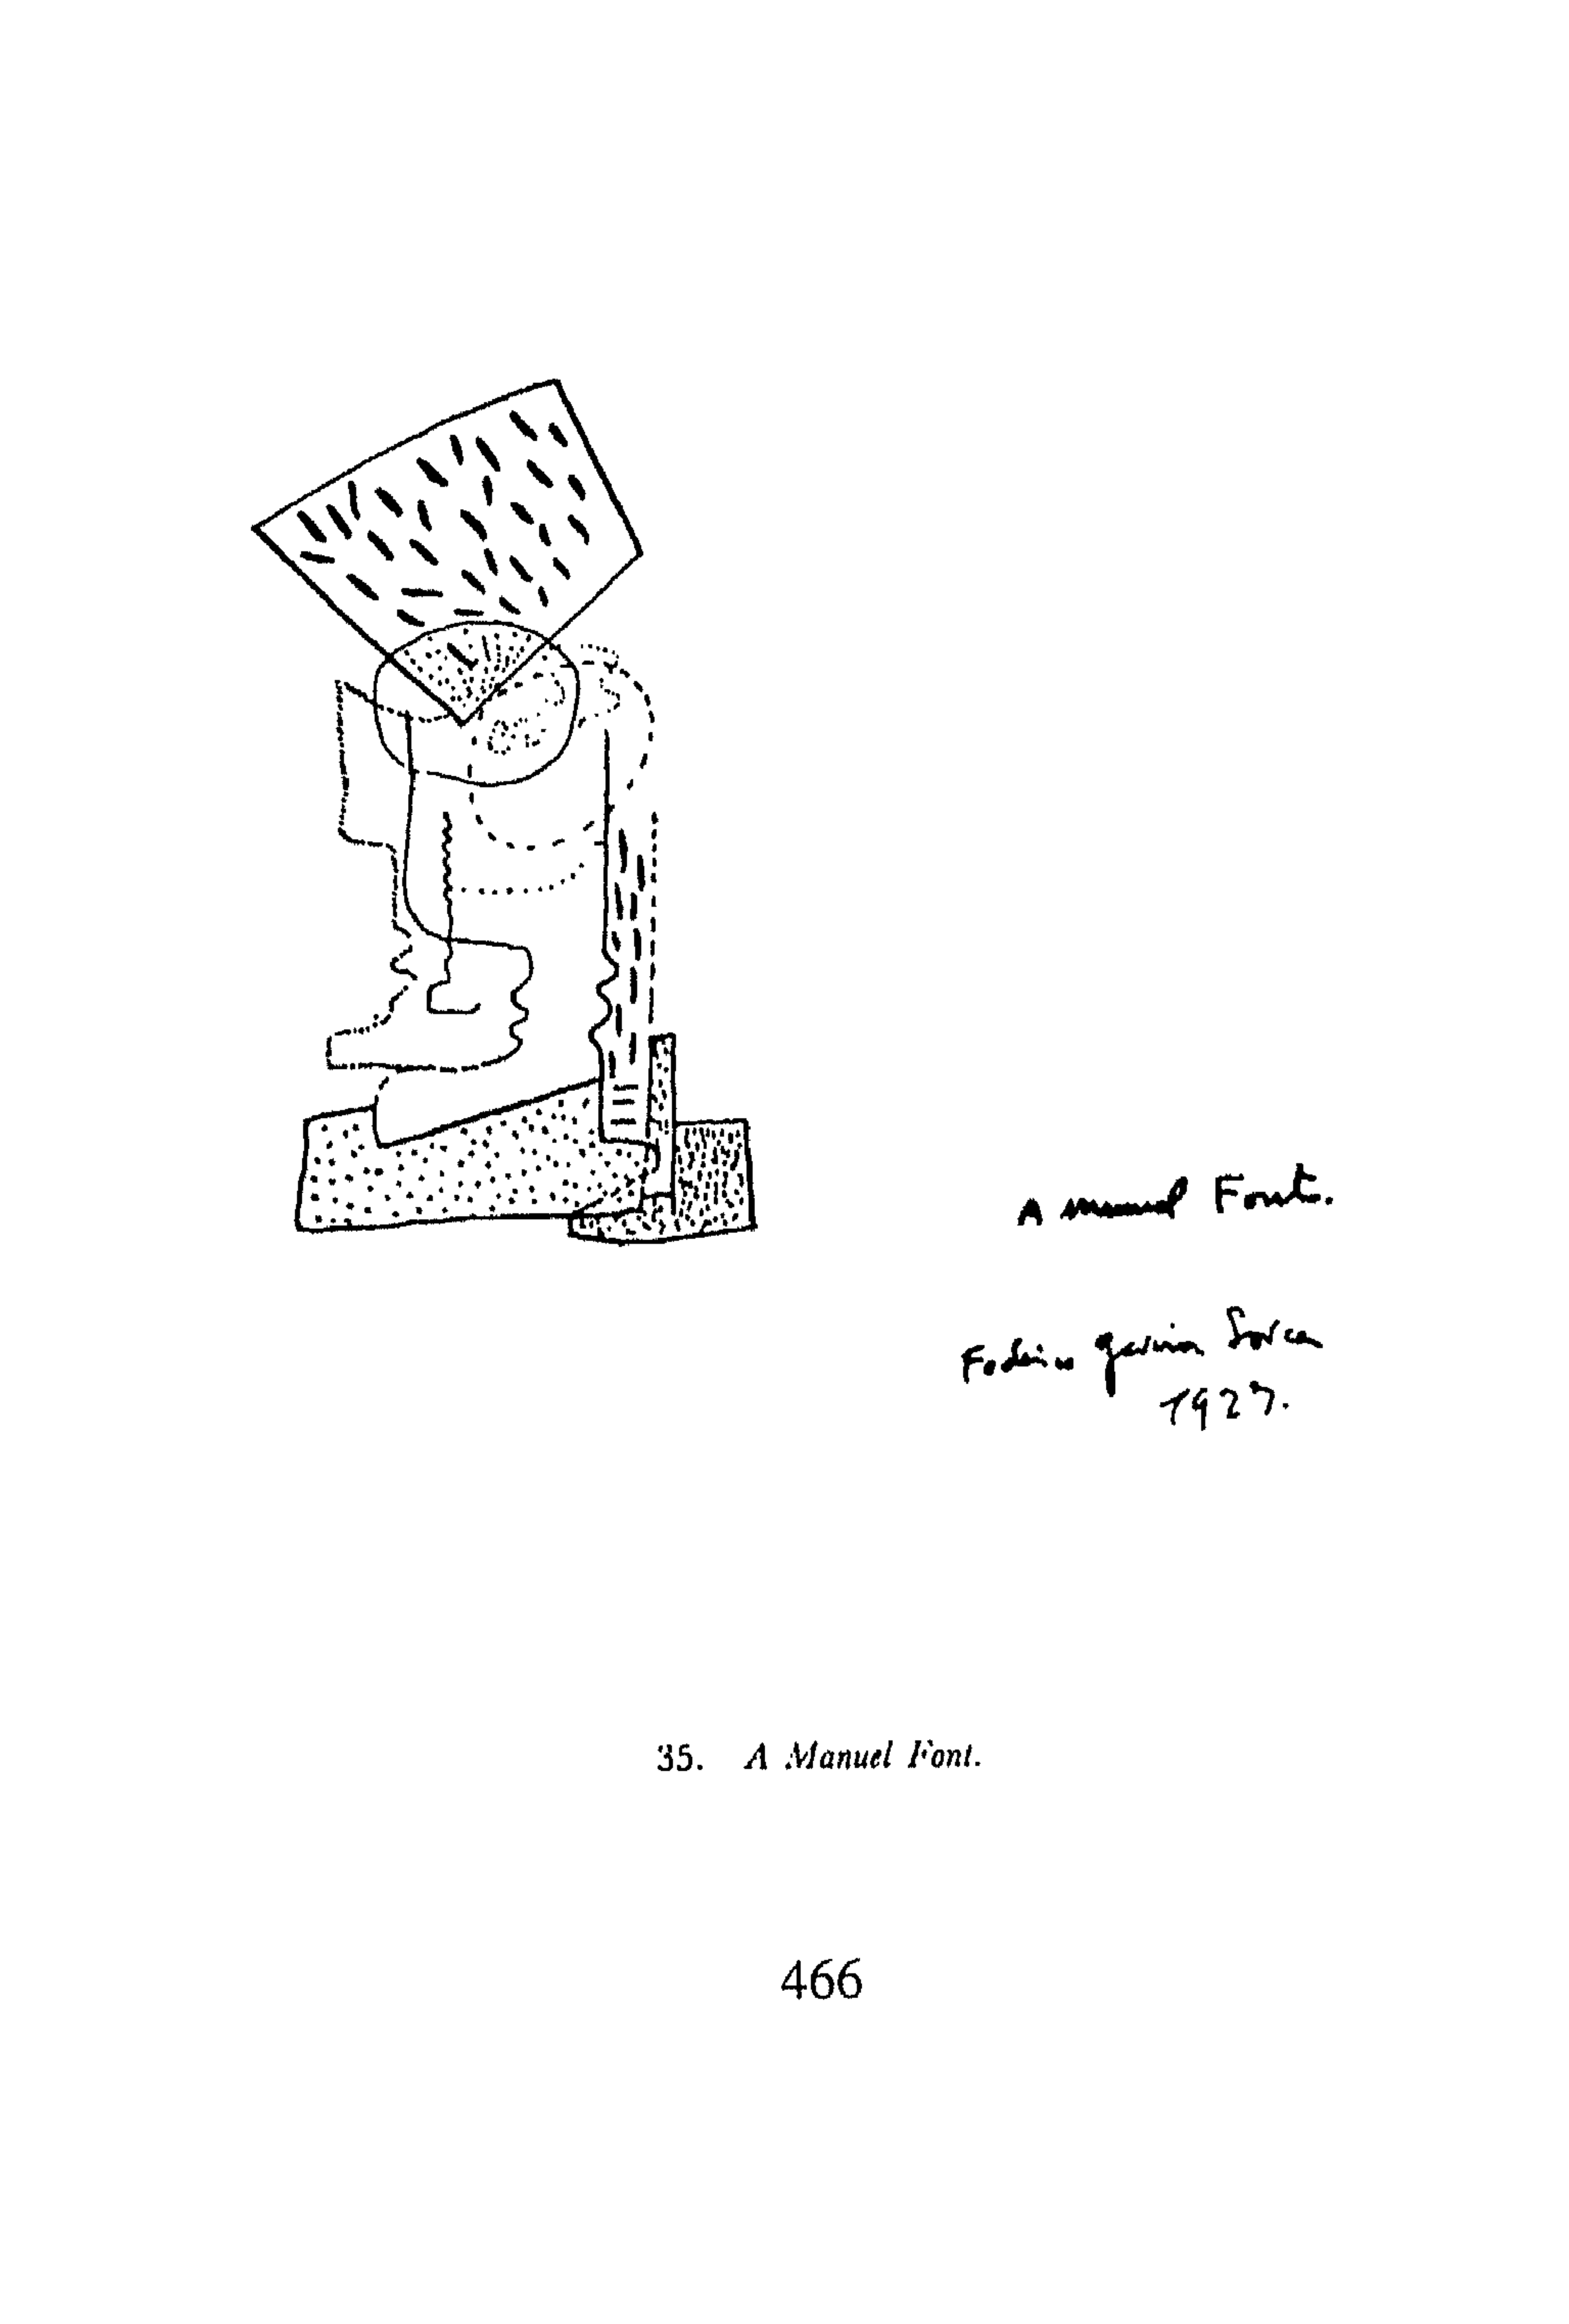 A Manuel Font.
Federico García Lorca
1927.
35. A Manuel Font.
466